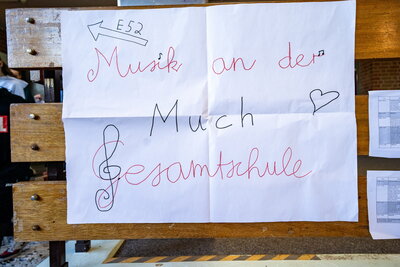 E52
Musik an der
Much
Gesamtschule